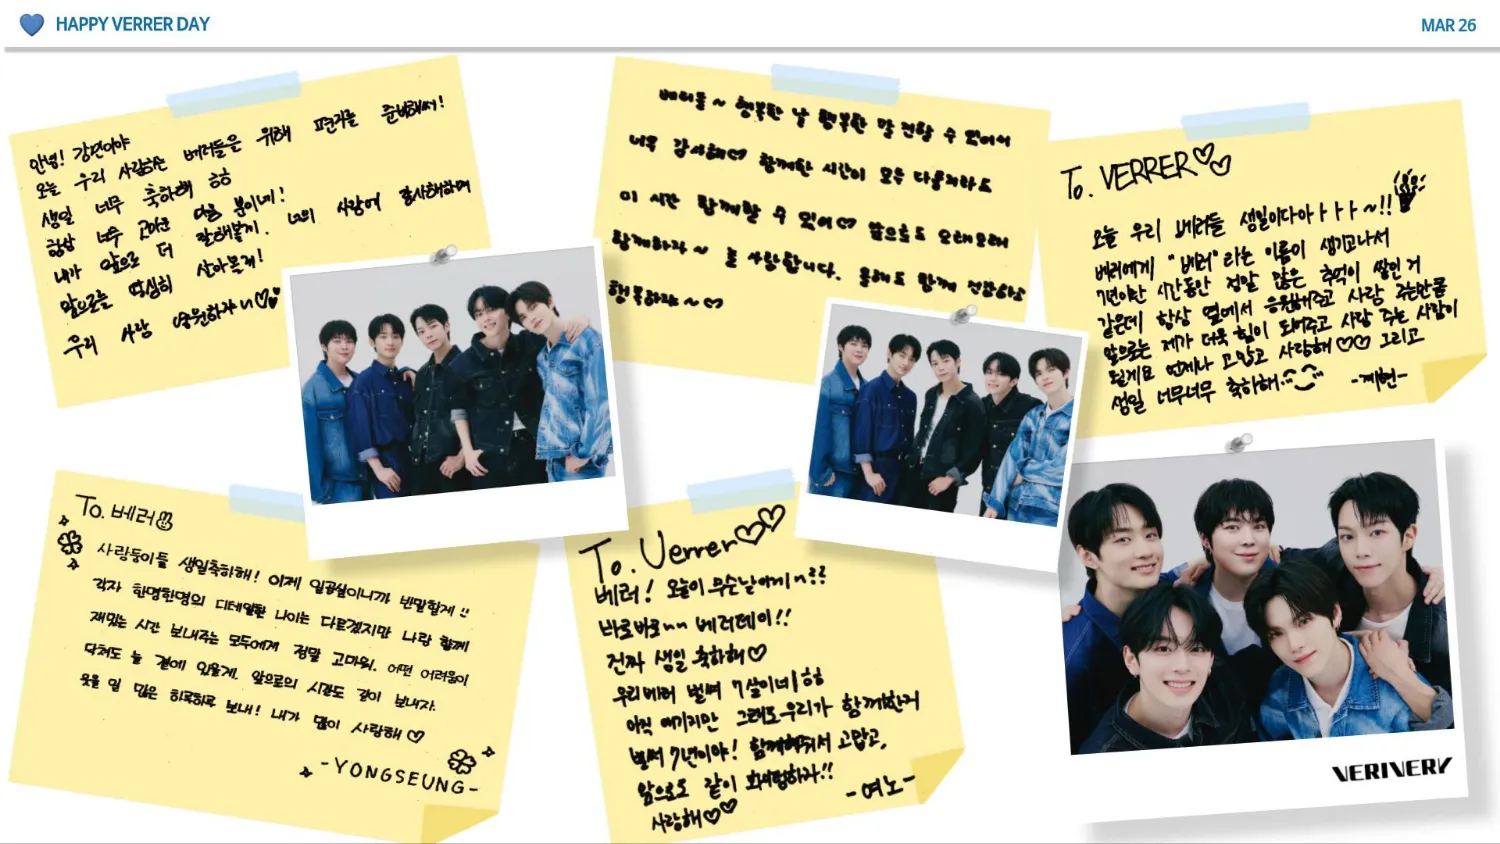 HAPPY VERRER DAY
MAR 26
안녕! 강민이야
오늘 우리 사랑하는 베러들을 위해 편지를 준비해써!
생일 너무 축하해 ㅎㅎ
항상 너무 고마운 마음 뿐이네!
내가 앞으로 더 잘해볼게. 너의 사랑에 감사해하며
앞으로를 열심히 살아볼게!
우리 사랑 영원하자ㅏ니♡
베러들~ 행복한 날 행복한 말 전할 수 있어서
너무 감사해♡ 함께한 시간이 모두 다를지라도
이 시간 함께할 수 있어♡ 앞으로도 오래오래
함께하자~ 늘 사랑합니다. 올해도 함께 건강하고
행복하자~♡
To. VERRER♡♡
오늘 우리 베러들 생일이다아ㅏㅏㅏ~!!
베러에게 "베러"라는 이름이 생기고나서
7년이란 시간동안 정말 많은 추억이 쌓인 거
같은데 항상 옆에서 응원해주고 사랑 주는만큼
앞으로는 제가 더욱 힘이 되어주고 사랑 주는 사람이
될게요 언제나 고맙고 사랑해♡♡ 그리고
생일 너무너무 축하해..
-계현-
To. 베러
사랑둥이들 생일축하해! 이제 일곱살이니까 반말할게!!
각자 한명한명의 디테일한 나이는 다르겠지만 나랑 함께
재밌는 시간 보내주는 모두에게 정말 고마워. 어떤 어려움이
닥쳐도 늘 곁에 있을게. 앞으로의 시간도 같이 보내자.
웃을 일 많은 하루하루 보내! 내가 많이 사랑해♡
-YONGSEUNG-
To. Verrer♡♡
베러! 오늘이 무슨날이게~??
바로바로~~ 베러데이!!
진짜 생일 축하해♡
우리베러 벌써 7살이네ㅣㅎㅎ
아직 애기지만 그래도 우리가 함께한지
벌써 7년이야! 함께해줘서 고맙고,
앞으로도 같이 화이팅하자!!
사랑해♡♡
-연호-
VERIVERY